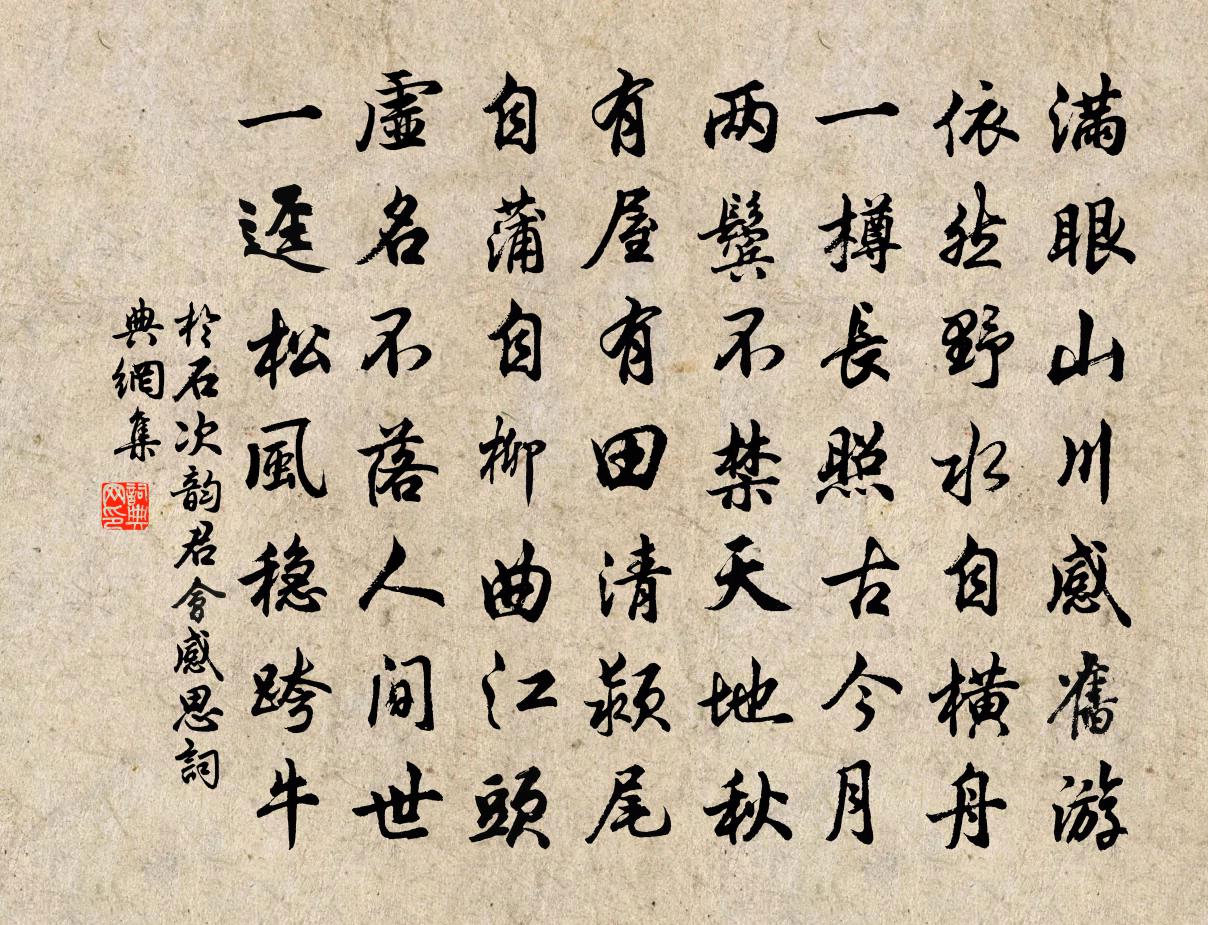 满眼山川感舊游
依然野水自橫舟
一樽長照古今月
两鬓不禁天地秋
有屋有田清颍尾
自蒲自柳曲江頭
虛名不落人间世
一迳松風稳跨牛
於石次韵君會感思詞
典網集
詞典
网印